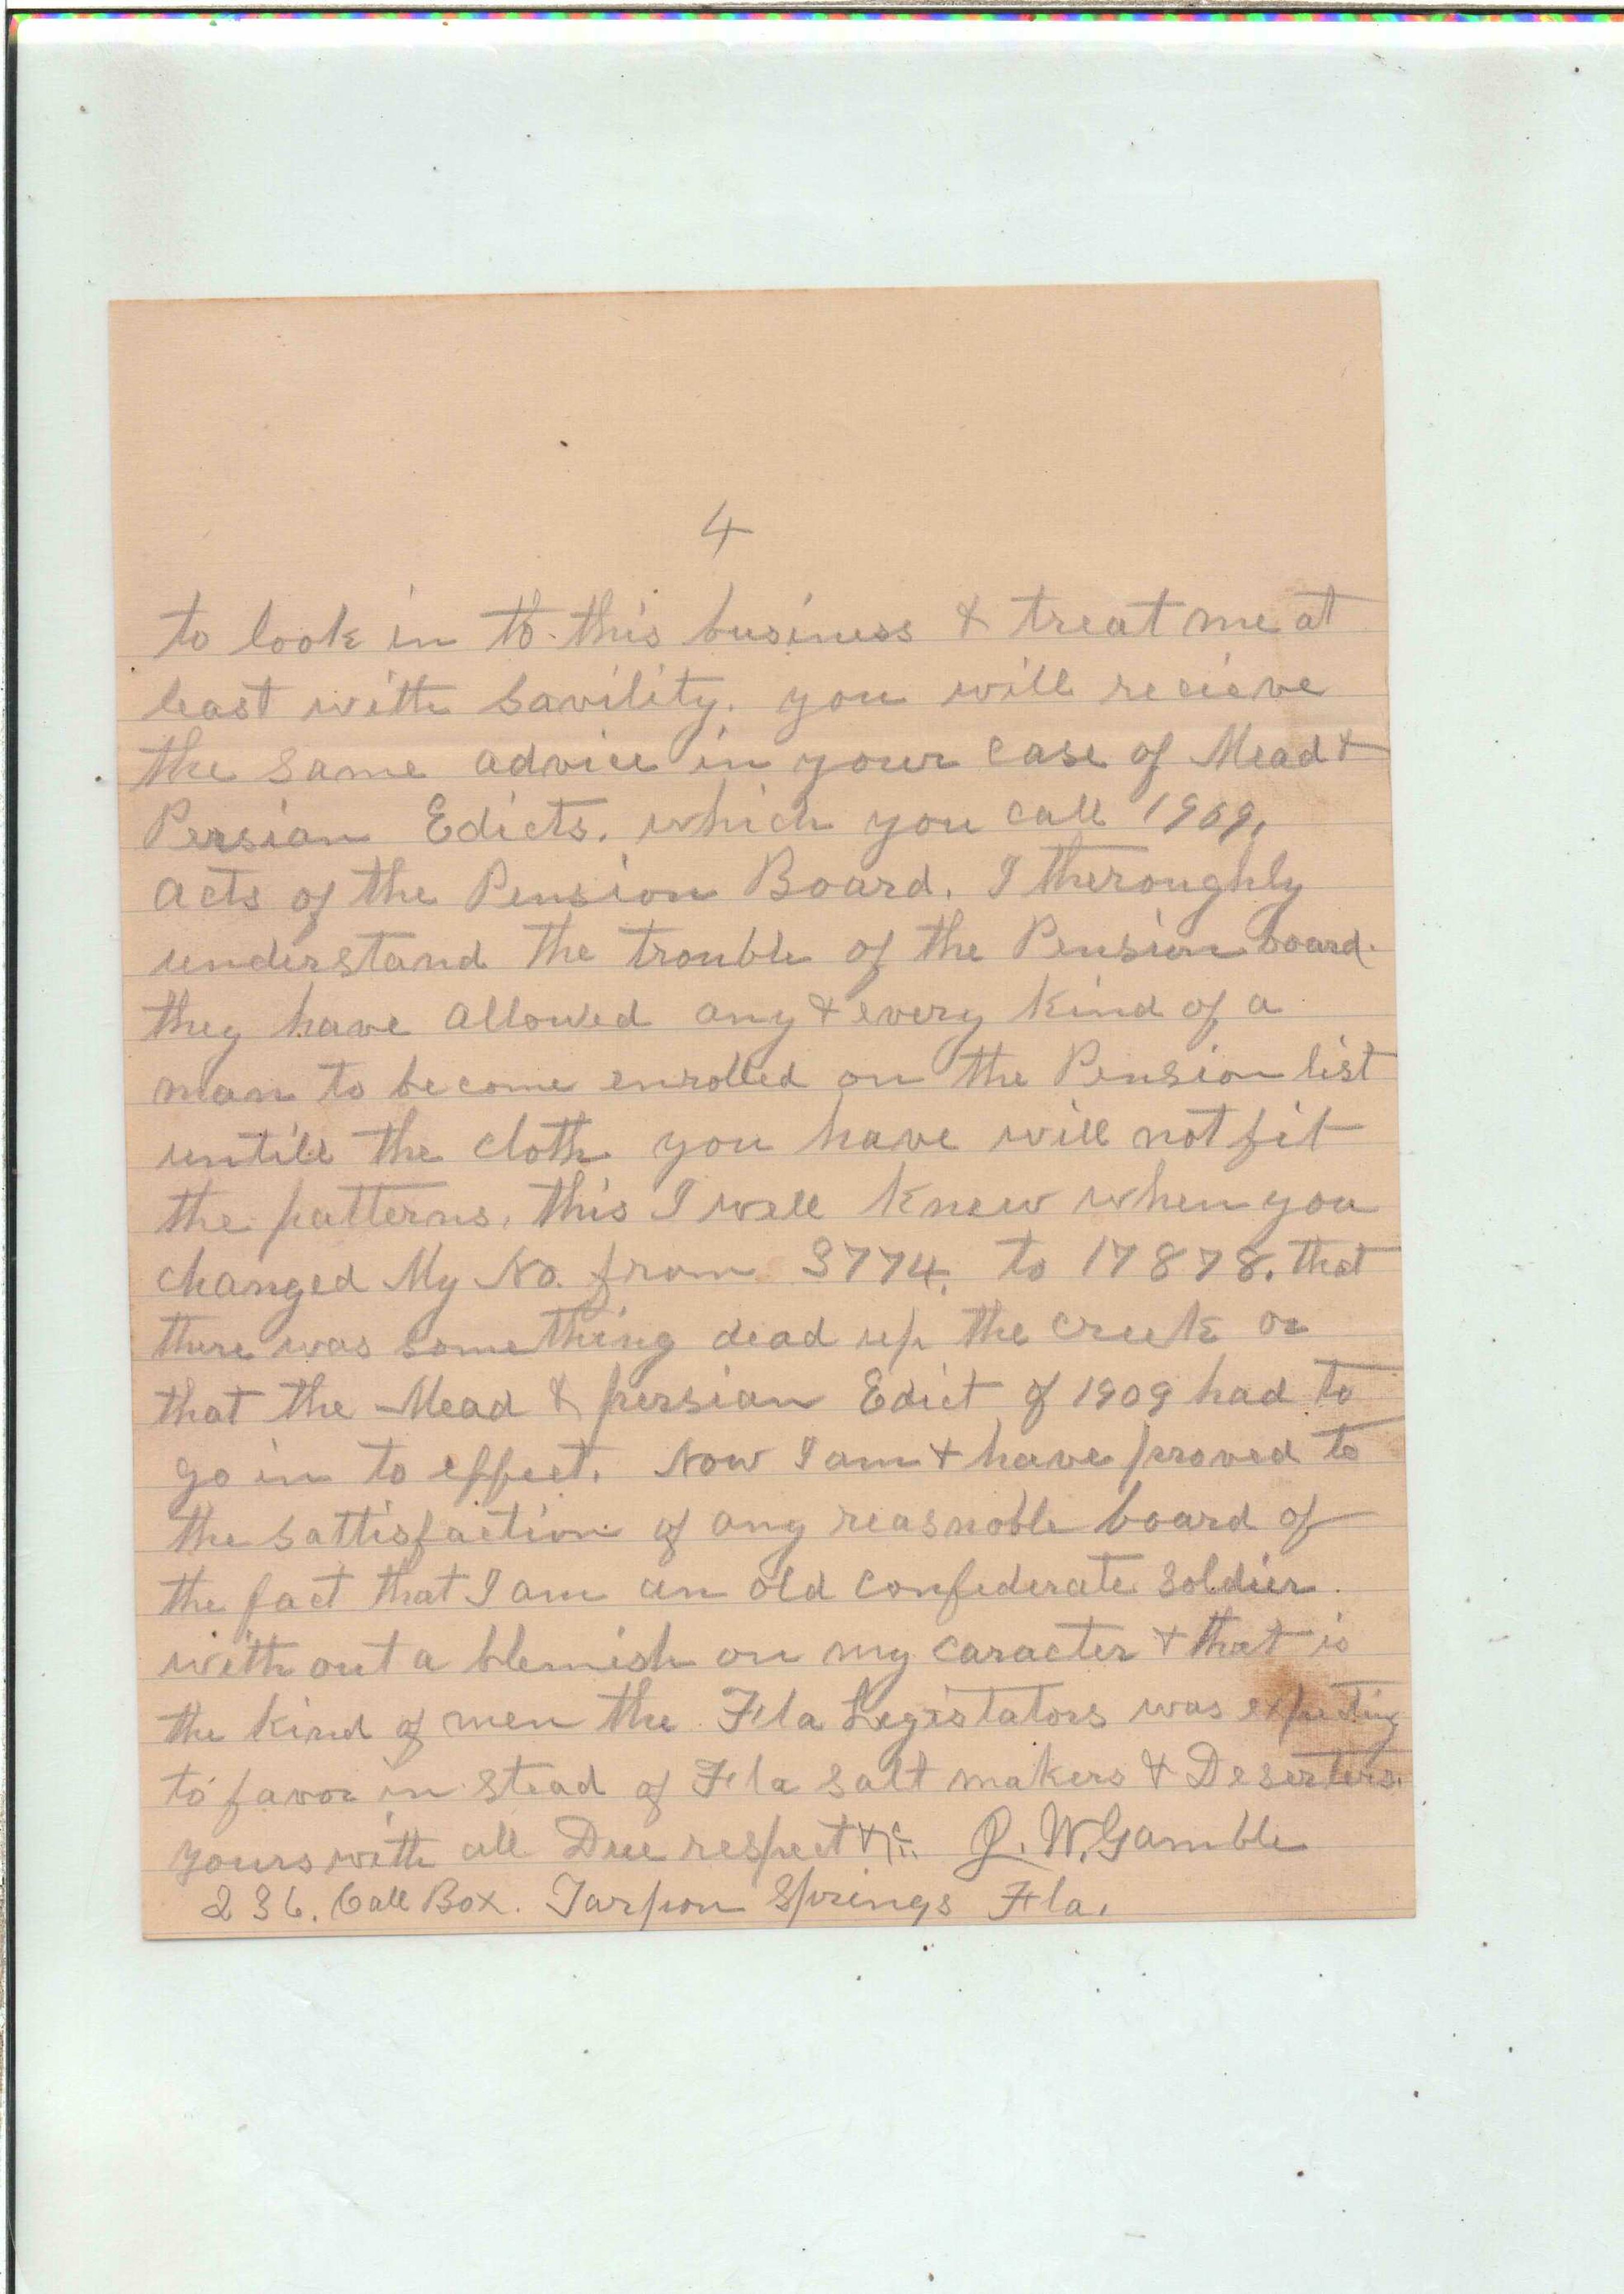 4
to look in to this business & treat me at
least with Savility. you will recieve
the same advice in your case of Mead &
Persian Edicts. which you call 1909.
acts of the Pension Board. I theroughly
understand the trouble of the Pension board.
they have allowed any & every kind of a
man to become enrolled on the Pension list
untill the cloth you have will not fit
the patterns. this I well knew when you
changed My No. from 3774. to 17878. that
there was something dead up the creek or
that the Mead & persian Edict of 1909 had to
go in to effect. Now I am & have proved to
the sattisfaction of any reasnoble board of
the fact that I am an old confederate soldier.
with out a blemish on my caracter & that is
the kind of men the Fla Legistators was expecting
to favor in stead of Fla salt makers & Deserters.
yours with all Due respect &c. J. W. Gamble
236. Call Box. Tarpon Springs Fla.